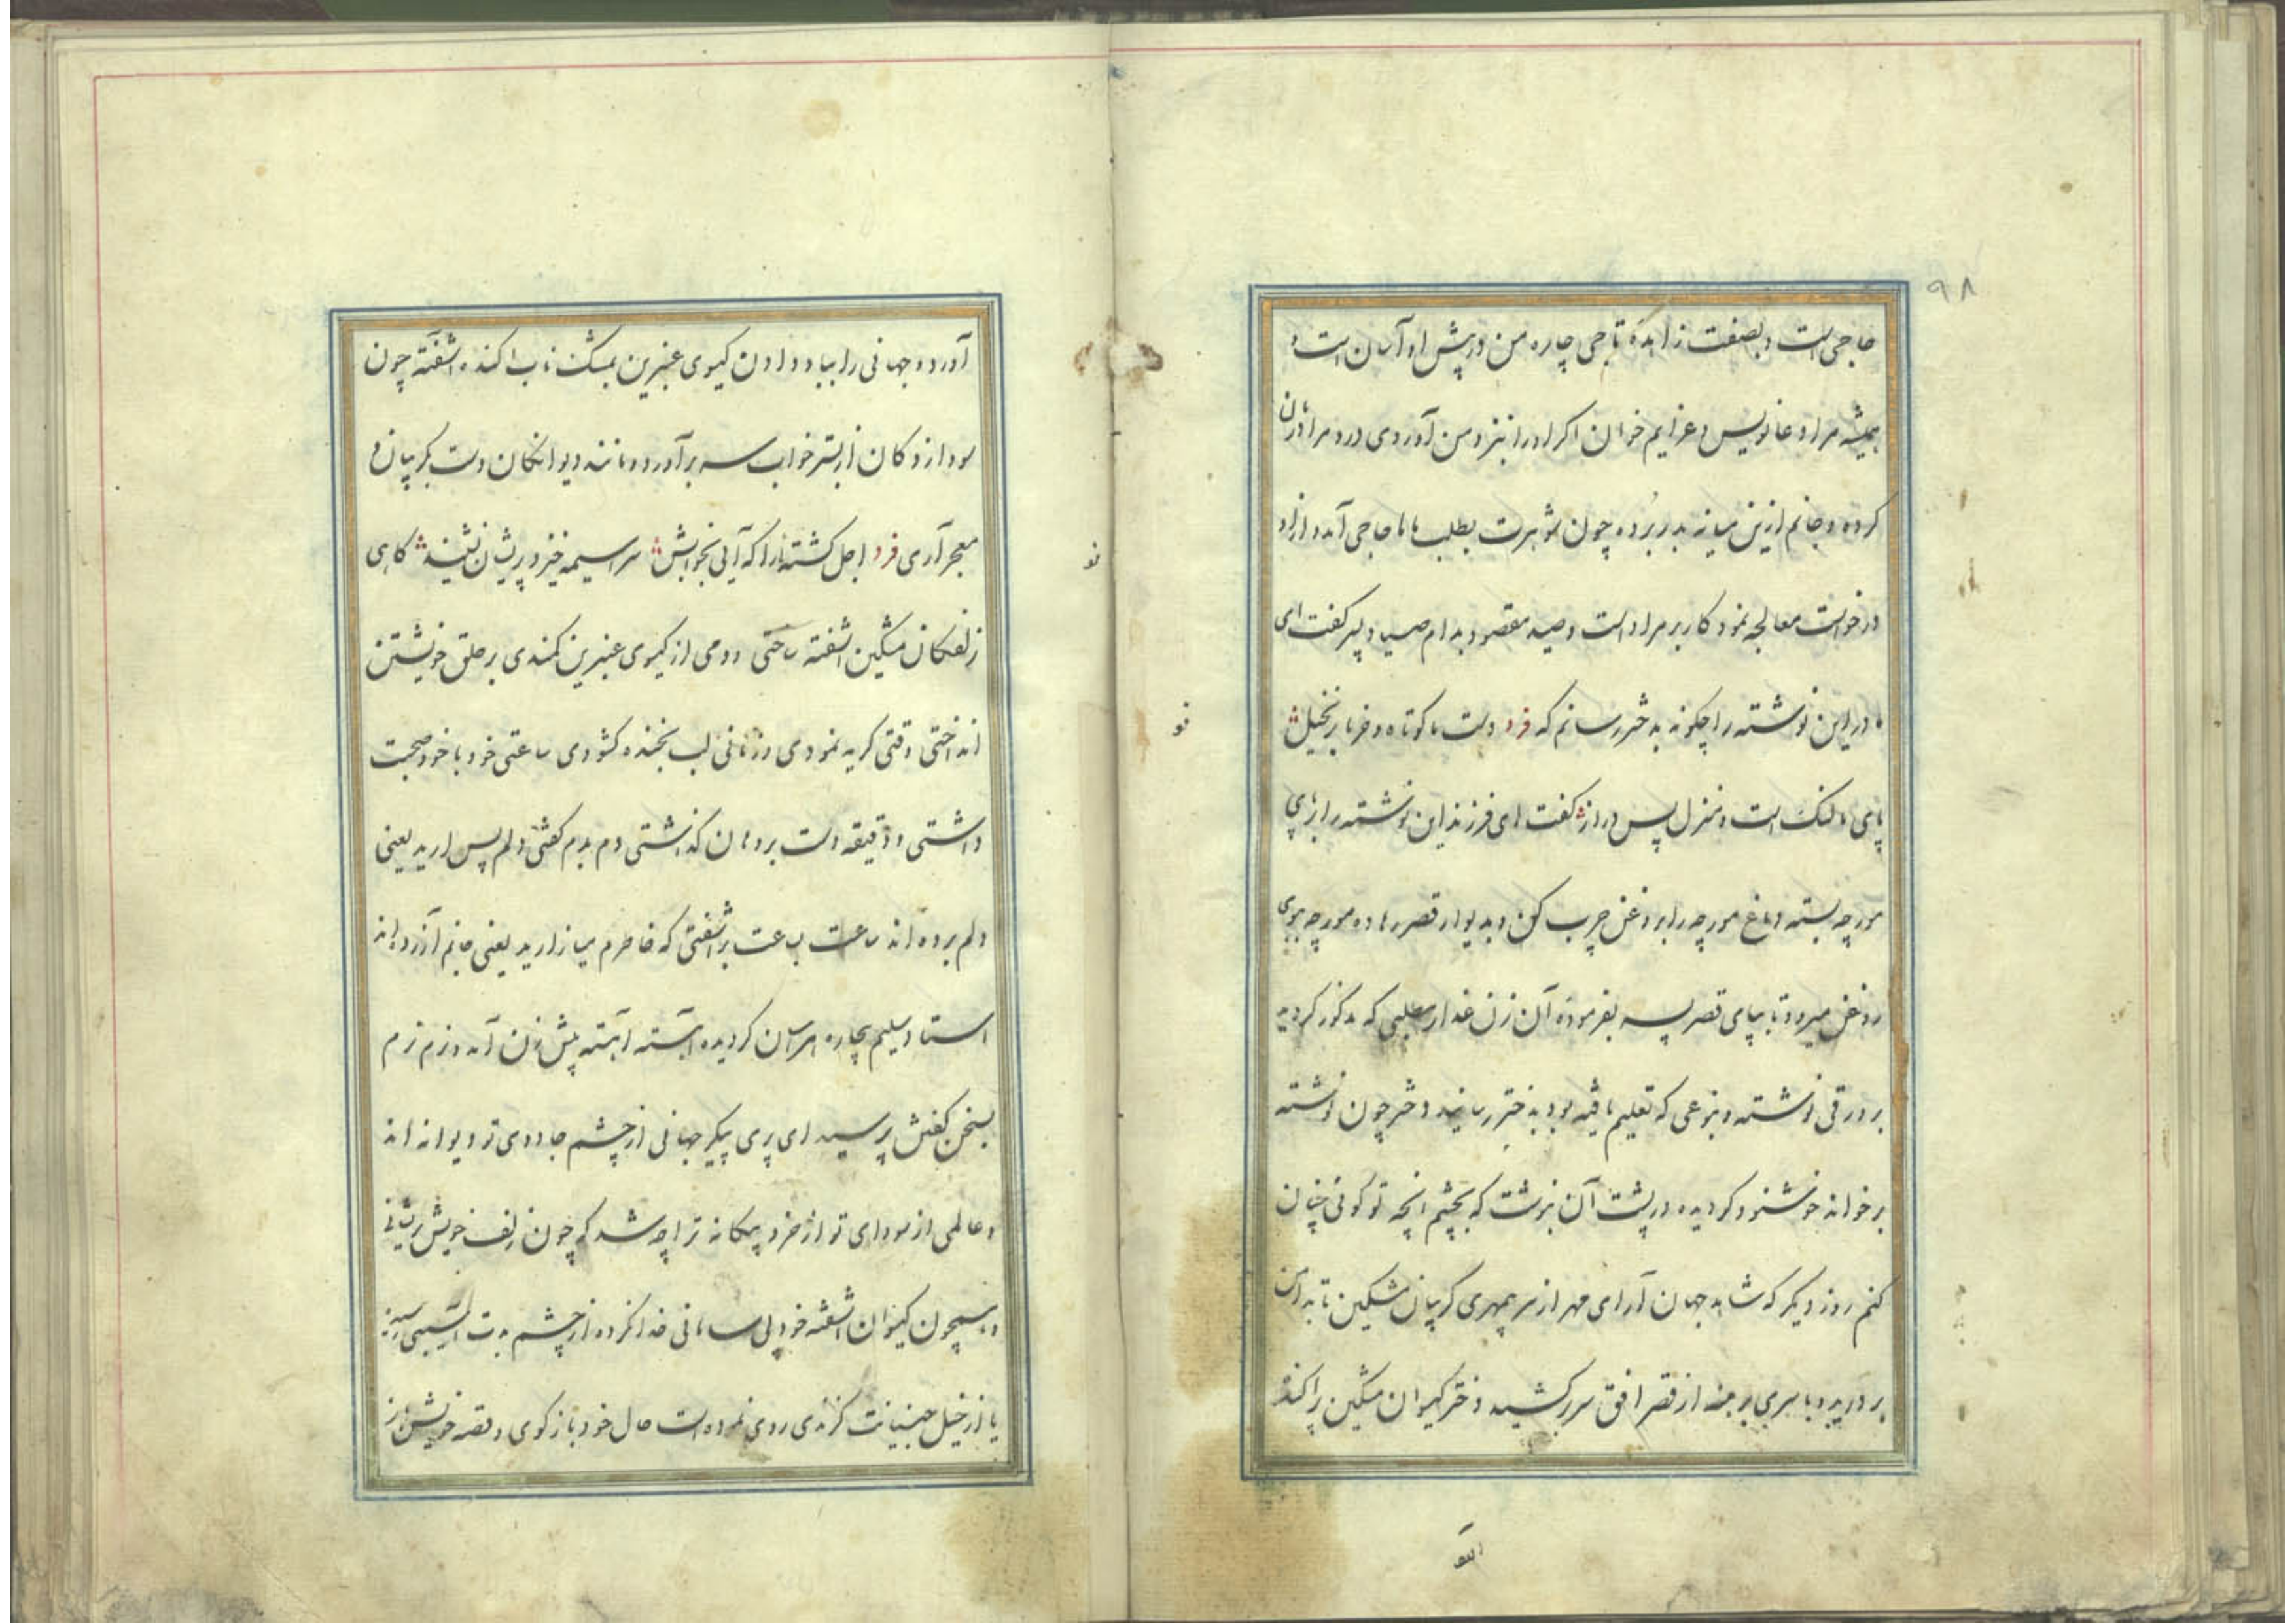 ۹۸
حاجی است و بصفت زاهده تاجی چاره من در پیش او آسان است و
همیشه مرا دعا نویس و عزایم خوان اکر او را نیز و من آوردی درد مرا درمان
کرده و جانم ازین میانه بدر برده چون شوهرت بطلب ماما حاجی آمد و از او
درخواست معالجه نمود کار بر مراد است و صید مقصود بدام صیاد پسر کفت ای
مادر این نوشته را چکونه بدختر رسانم که فرد دست ما کوتاه و خرما بر نخیل
پای ما لنک است و منزل بس دراز کفت ای فرزند این نوشته را بر پای
مورچه بسته دماغ مورچه را بروغن چرب کن و بدیوار قصر رها ده مورچه ببوی
روغن میرود تا بپای قصر پسر بفرموده آن زن غدار مطلبی که مذکور کردید
بر ورقی نوشته و بنوعی که تعلیم یافته بود بدختر رسانید دختر چون نوشته
برخواند خوشنود کردیده در پشت آن بنوشت که بچشم انچه تو کوئی چنان
کنم روز دیکر که شاهد جهان آرای مهر از سر بیمهری کریبان مشکین تا بدامن
بر درید و با سری برهنه از قصر افق سر برکشید دختر کیسوان مشکین پراکنده
نو
آورد و جهانی را بباد دادن کیسوی عنبرین بمشک ناب اکنده اشفته چون
سودازدکان از بستر خواب سر برآورد و مانند دیوانکان دست بکریبان و
معجر آری فرد اجل کشته را که آیی بخوابش سراسیمه خیزد پریشان نشیند کاهی
زلفکان مشکین اشفته ساختی و دمی از کیسوی عنبرین کمندی بر حلق خویشتن
انداختی وقتی کریه نمودی و زمانی لب بخنده کشودی ساعتی خود با خود صحبت
داشتی و دقیقه دست بر دهان کذاشتی دم بدم کفتی دلم پس ارید یعنی
دلم برده اند ساعت بساعت برآشفتی که خاطرم میازارید یعنی جانم آزرده اند
استاد سلیم بیچاره هراسان کردیده آهسته آهسته پیش زن آمد و نرم نرم
بسخن کفتنش پرسید ای پری پیکر جهانی از چشم جادوی تو دیوانه اند
و عالمی از سودای تو از خرد بیکانه ترا چه شد که چون زلف خویش پریشانی
و همچون کیسوان اشفته خود بی سامانی خدا نکرده از چشم بدت آسیبی رسیده
یا از خیل جنیانت کزندی روی نموده است حال خود باز کوی و قصه خویش
نو